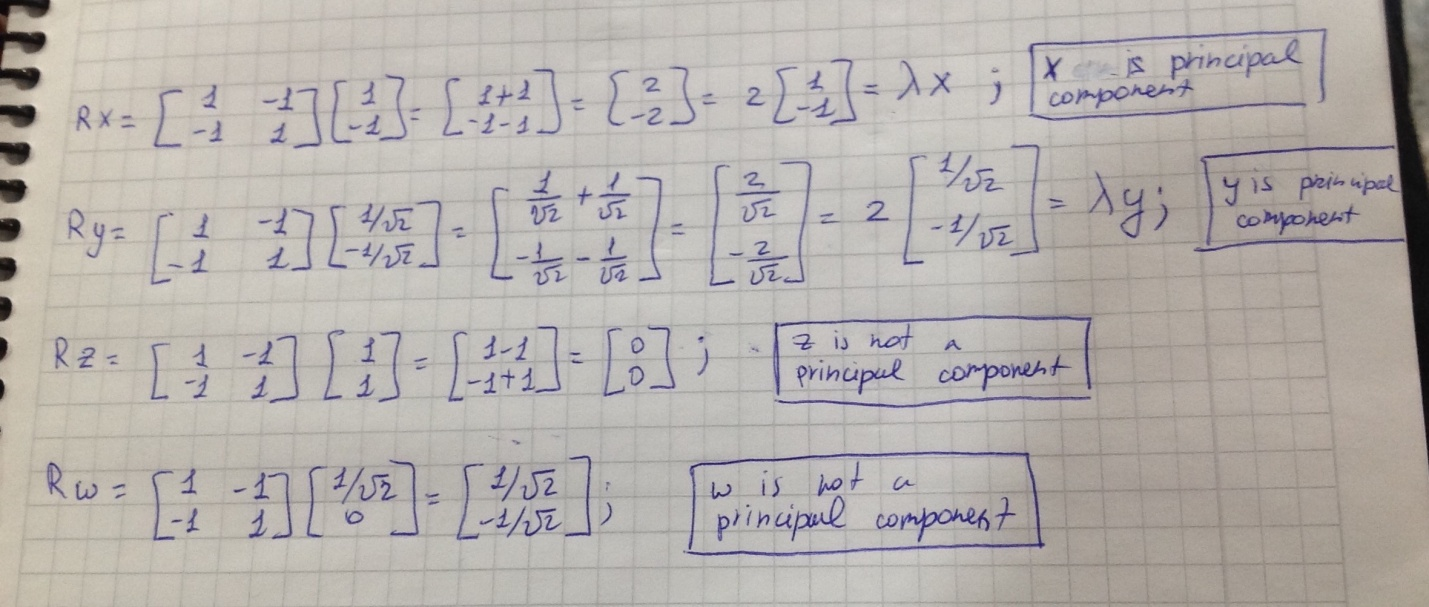 Rx = [1 -1; -1 1] [1; -1] = [1+1; -1-1] = [2; -2] = 2 [1; -1] = λx ; x is principal component
Ry = [1 -1; -1 1] [1/√2; -1/√2] = [1/√2 + 1/√2; -1/√2 - 1/√2] = [2/√2; -2/√2] = 2 [1/√2; -1/√2] = λy ; y is principal component
Rz = [1 -1; -1 1] [1; 1] = [1-1; -1+1] = [0; 0] ; z is not a principal component
Rw = [1 -1; -1 1] [1/√2; 0] = [1/√2; -1/√2] ; w is not a principal component